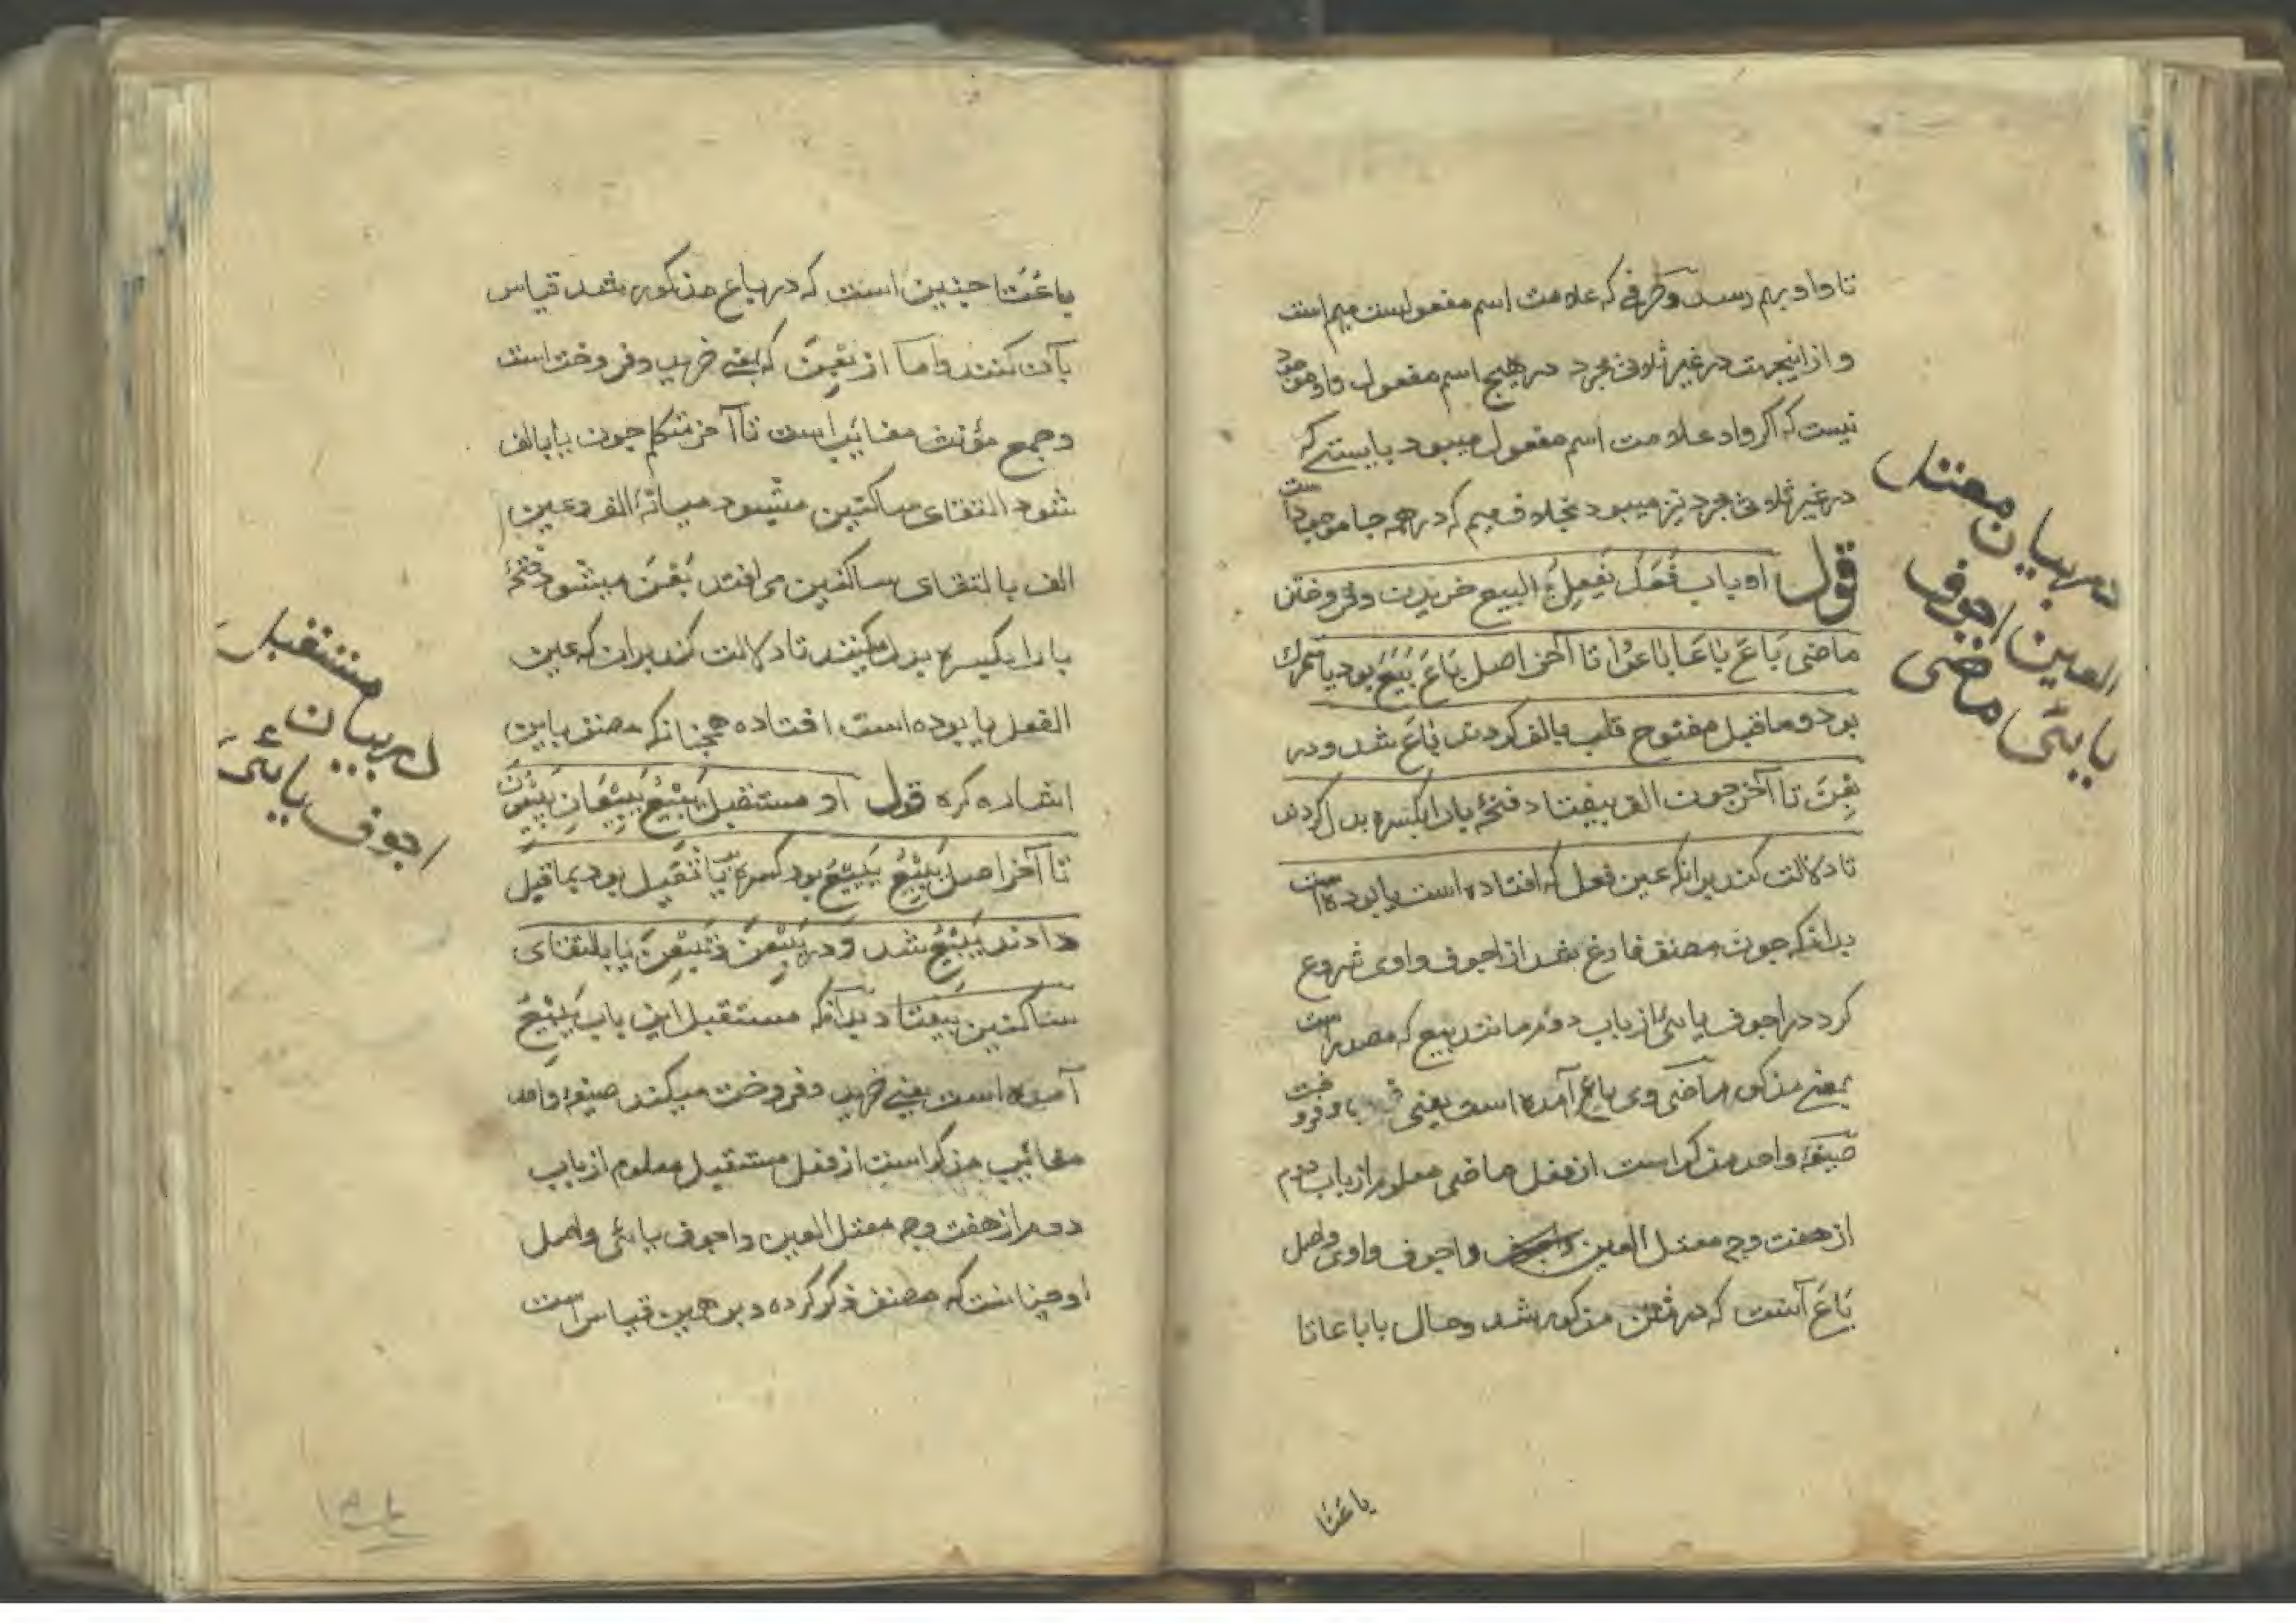 تا واو بهم رسد و حرفی که علامت اسم مفعولست میم است
و از اینجهت در غیر ثلاثی مجرد در هیچ اسم مفعول واو موجود
نیست که اکر واو علامت اسم مفعول میبود بایستی که
در غیر ثلاثی مجرد نیز میبود بخلاف میم که در همه جا موجود است
قول او باب فَعَلَ یَفعِلُ البیع خریدن و فروختن
ماضی بَاعَ بَاعَا بَاعُوْا تا آخر اصل بَاعَ بَیَعَ بود یا متحرك
بود و ماقبل مفتوح قلب بالف کردند بَاعَ شد و در
بِعْنَ تا آخر جون الف بیفتاد فتحهٔ با را بکسره بدل کردند
تا دلالت کند برانکه عین فعل که افتاده است یا بوده است
بدانکه جون مصنف فارغ شد از اجوف واوی شروع
کرد در اجوف یائی از باب دوم مانند بیع که مصدر است
بمعنی مذکور ماضی وی باع آمده است یعنی و فروخت
صیغهٔ واحد مذکر است از فعل ماضی معلوم از باب دوم
از هفت وجه معتل العین و اجوف واوی و اصل
بَاعَ آنست که در متن مذکور شد و حال باباعا تا
باعَتَا
در بیان معتل
العین اجوف
یایئی ماضی
باعَتَا جنین است که در باع مذکور شد قیاس
بآن کنند و اما از بِعْنَ که یعنی خرید و فروخت است
و جمع مؤنث مغائب است تا آخر متکلم جون یا بالف
شود التقای ساکنین میشود میانهٔ الف و عین
الف بالتقای ساکنین می افتد بَعْنَ میشود فتحهٔ
با را بکسره بدل میکنند تا دلالت کند بران که عین
الفعل یا بوده است افتاده همچنانکه مصنف باین
اشاره کرده قول او مستقبل یَبِیْعُ یَبِیْعَانِ یَبِیْعُوْنَ
تا آخر اصل یَبِیْعُ یَبْیِعُ بود کسره بر یا ثقیل بود بماقبل
دادند یَبِیْعُ شد و در یَبِعْنَ و تَبِعْنَ یا بالتقای
ساکنین بیفتاد بدانکه مستقبل این باب یَبِیْعُ
آمده است یعنی خرید و فروخت میکند صیغهٔ واحد
مغائب مذکر است از فعل مستقبل معلوم از باب
دوم از هفت وجه معتل العین و اجوف یائی و اصل
او جنانست که مصنف ذکر کرده و بر همین قیاس است
در بیان مستقبل
اجوف یائی